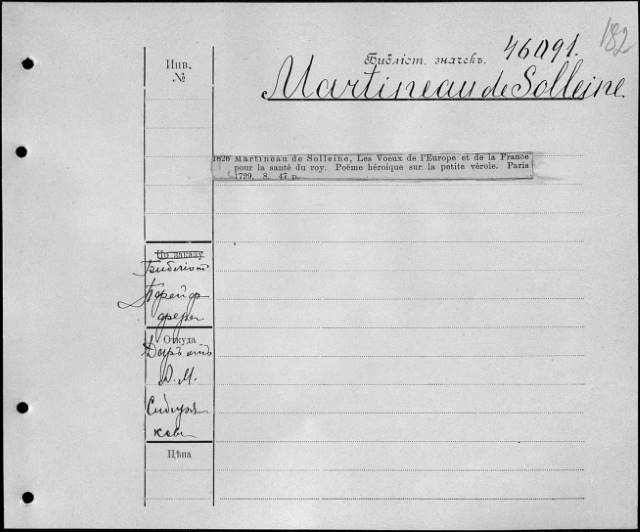 182
46091.
Библіот. значекъ.
Инв.
№
Martineau de Solleine.
1820 Martineau de Solleine, Les Voeux de l'Europe et de la France
pour la santé du roy. Poëme héroïque sur la petite vérole. Paris
1729. 8. 47 p.
По заказу
Библіот
Откуда
Даръ отъ
А. М.
Цѣна